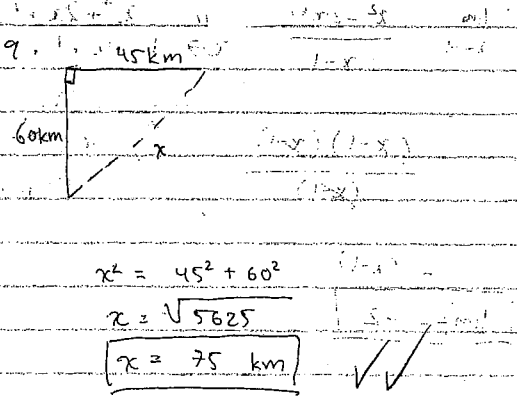 9.
45km
60km
x
x² = 45² + 60²
x = √5625
x = 75 km